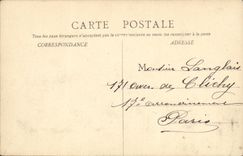 CARTE POSTALE
Tous les pays étrangers n'acceptent pas la correspondance au recto, se renseigner à la poste
CORRESPONDANCE
ADRESSE
Monsieur Langlais
171 Avenue de Clichy
17e arrondissement
Paris